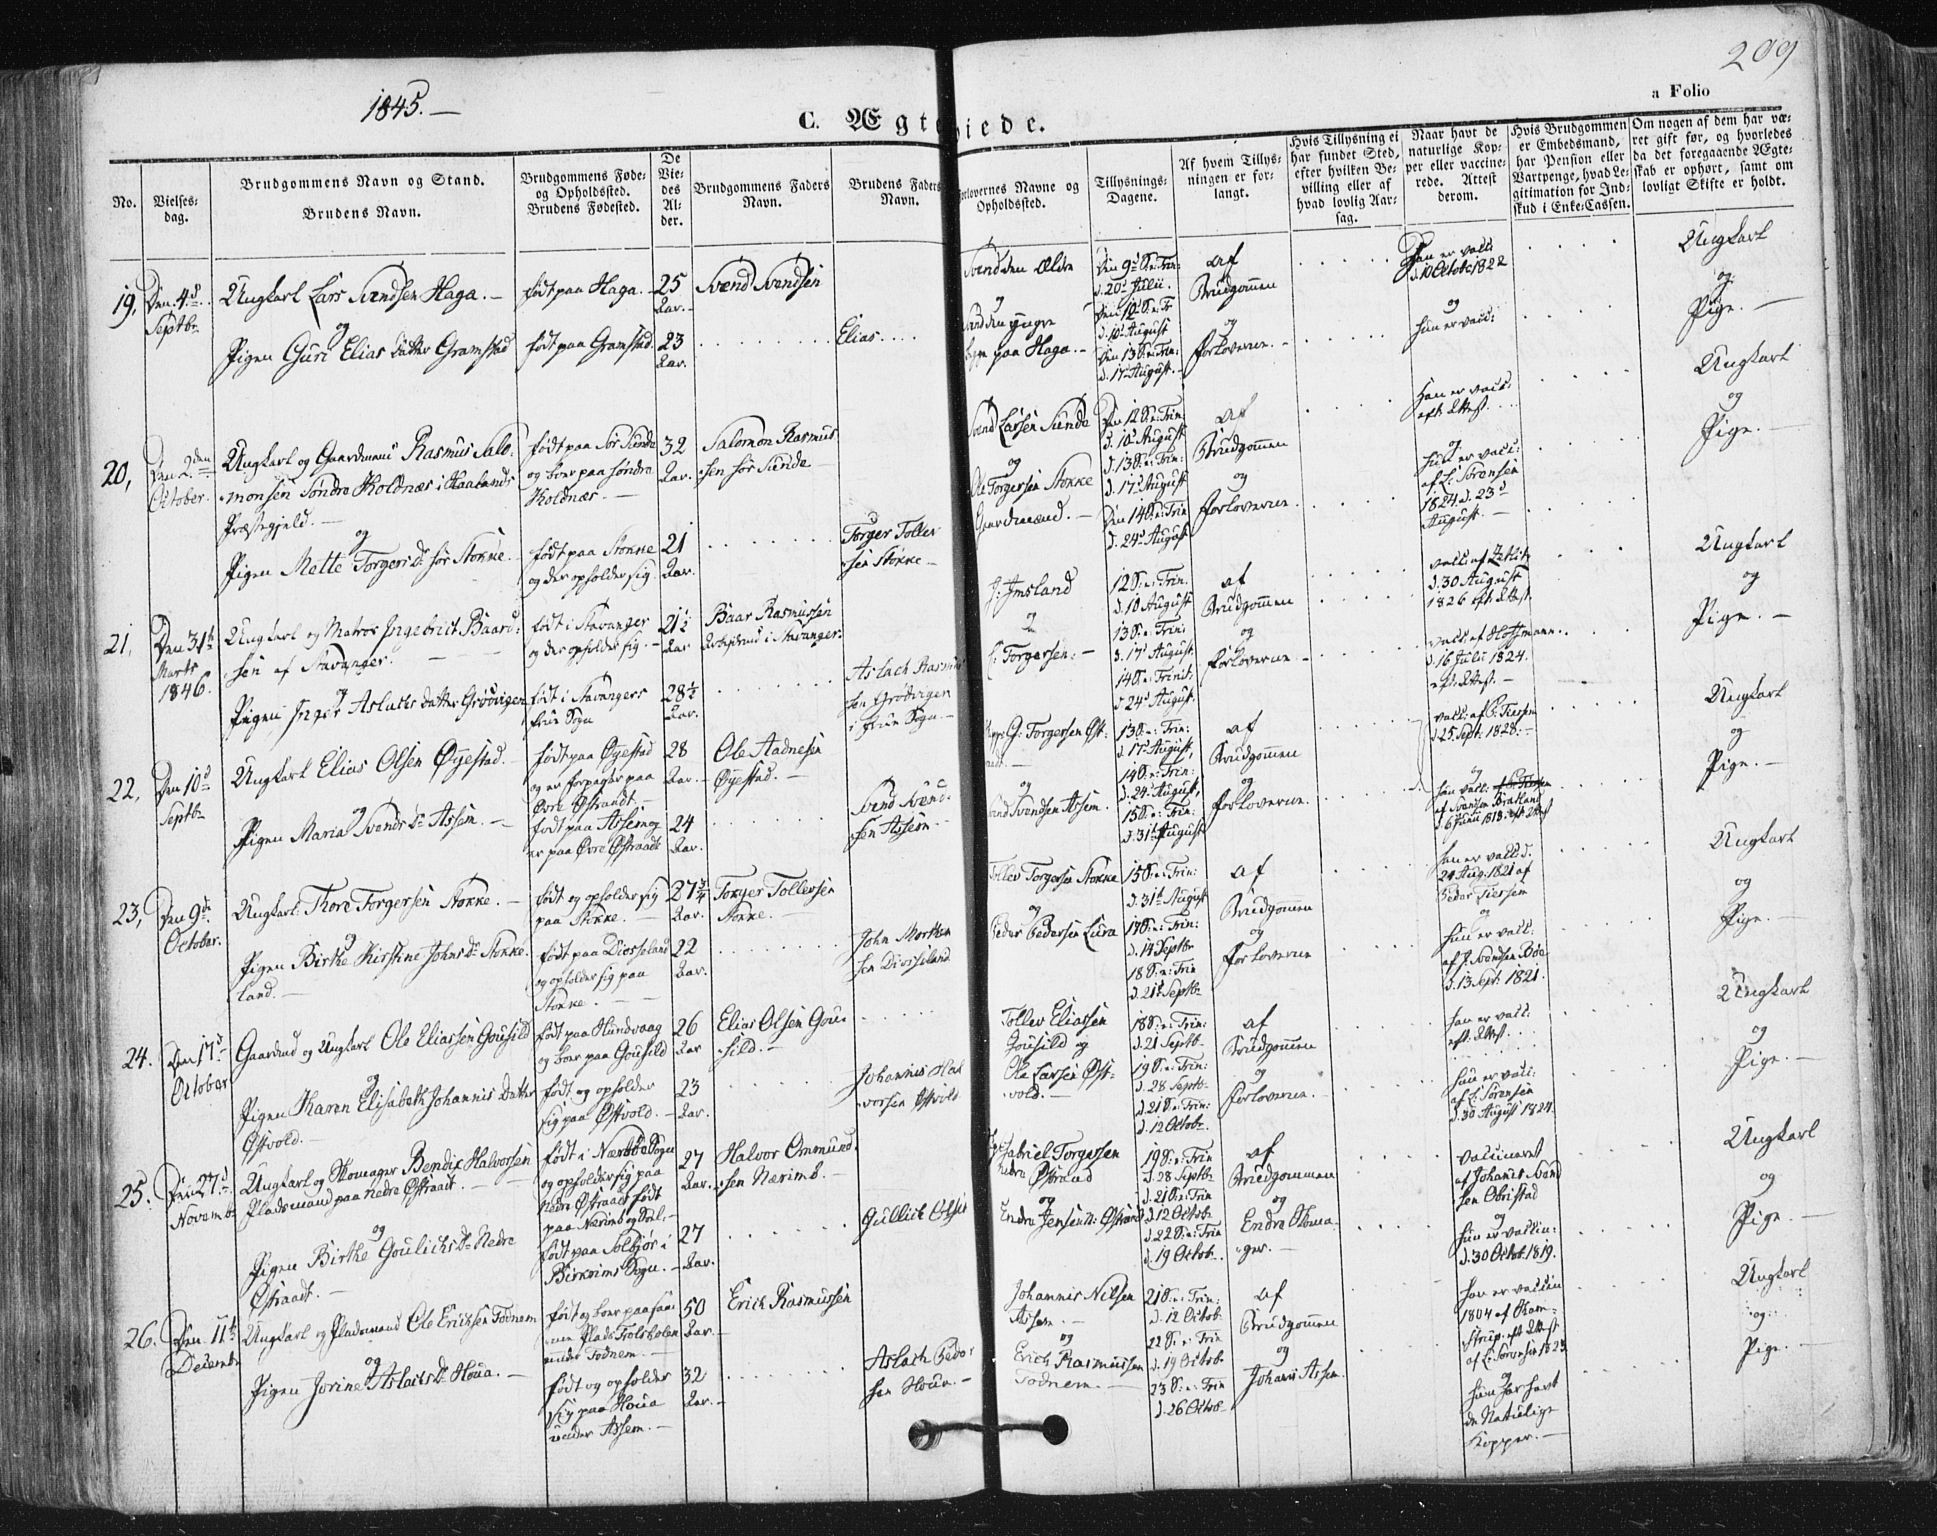 1845.
209
a Folio
C. Ægteviede.
No.
Vielses-
dag.
Brudgommens Navn og Stand.
Brudens Navn.
Brudgommens Føde-
og Opholdssted.
Brudens Fødested.
De
Vie-
des
Al-
der.
Brudgommens Faders
Navn.
Brudens Faders
Navn.
Forlovernes Navne og
Opholdssted.
Tillysnings-
Dagene.
Af hvem Tillys-
ningen er for-
langt.
Hvis Tillysning ei
har fundet Sted,
efter hvilken Be-
villing eller af
hvad lovlig Aar-
sag.
Naar havt de
naturlige Kop-
per eller vaccine-
rede. Attest
derom.
Hvis Brudgommen
er Embedsmand,
har Pension eller
Vartpenge, hvad Le-
gitimation for Ind-
skud i Enke-Cassen.
Om nogen af dem har væ-
ret gift før, og hvorledes
da det foregaaende Ægte-
skab er ophørt, samt om
lovligt Skifte er holdt.
19, Den 4de
Septbr
Ungkarl Lars Svendsen Haga. —
og
Pigen Guri Elias Datter Gramstad
født paa Haga. —
født paa Gramstad.
25
Aar. —
23
Aar.
Svend Svendsen
Elias. . . .
Svend den Ældre
og
Svend den yngre
paa Haga. —
Den 9de S. e: Trin:
d. 20de Julii.
d. 10de August
Den 13 S. e: Trin:
d. 17de August. —
af
Brudgommen
og
Forloverne. —
Han er vacc:
d. 10 Octobr 1822
og
hun er vacc:
Ungkarl
og
Pige. —
20, Den 2den
October.
Ungkarl og Gaardmand Rasmus Salo-
monsen Søndre Koldnæs i Haalands
Præstegjeld. —
og
Pigen Mette Torgers Dr Sør Stokke. —
født paa Sør Sunde
og boer paa Søndre
Koldnæs. —
født paa Stokke
og der opholder sig.
32
Aar.
21
Aar.
Salomon Rasmus-
sen Sør Sunde
Torger Toller-
sen Stokke —
Svend Larsen Sunde
og
Ole Torgersen Stokke
Gaardmænd. —
Den 12 S. e: Trin:
d. 10de August
d. 13 S. e: Trin:
d. 17de August
Den 14 S. e: Trin
d. 24de August
af
Brudgommen
og
Forloverne.
Han er vacc:
eft: Attest.
og
hun er vacc:
af L: Sørensen
1824 d. 23de
August. —
Ungkarl
og
Pige. —
21, Den 31te
Marts
1846.
Ungkarl og Matros Ingebrict Baard-
sen af Stavanger. —
og
Pigen Inger Aslachs Datter Grødvigen
født i Stavanger
og der opholder sig. —
født i Stavangers
Frue Sogn
21½
Aar
28½
Aar.
Baar Rasmussen
Arbeidsmd i Stavanger.
Aslach Rasmus-
sen Grødvigen
i Frue Sogn. —
J. Imsland
og
Torgersen: —
12 S: e: Trin.
d. 10 August
13 S: e: Trin:
d. 17de August.
14 S: e: Trinit:
d 24de August.
af
Brudgommen
og
Forloverne —
vacc: af Zetlitz
d. 30 August
1826 eft. Attest.
vacc: af Hoffmann.
d. 16 Julii 1824.
eft. Attest. —
Ungkarl
og
Pige. —
22, Den 10de
Septbr
Ungkarl Elias Olsen Øyestad. —
og
Pigen Maria Svends Dr Assem. —
født paa Øyestad
og er forpagter paa
Øvre Østraadt. —
født paa Assem og
er paa Øvre Østraadt
28
Aar. —
24
Aar.
Ole Aadnesen
Øyestad. —
Svend Svend-
sen Assem. —
G: Torgersen Øst-
raadt. —
og
Svend Svendsen Assem.
13 S: e: Trin:
d. 17de August,
14 S: e: Trin:
d. 24de August,
15 S: e: Trin:
d. 31te August
af
Brudgommen
og
Forloverne.
vacc: af P: Tiersen
d. 25 Sept: 1828. —
og
hun vacc:
af Svendsen Bratland
d. 6 Junii 1818. eft. Attest
Ungkarl
og
Pige. —
23, Den 9de
October.
Ungkarl: Thore Torgersen Stokke. —
og
Pigen Birthe Kirstine Johns Dr Stokke-
land. —
født og opholder sig
paa Stokke. —
født paa Diosseland
og opholder sig paa
Stokke. —
27¾
Aar.
22
Aar.
Torger Tollevsen
Stokke. —
John Morthen-
sen Diosseland
Tollev Torgersen Stokke
og
Peder Pedersen Lura
15 S: e: Trin:
d. 31te August
17 S: e: Trin:
d. 14 Septbr
18 S: e: Trin
d. 21de Septbr
af
Brudgommen
og
Forloverne
han er vacc: d.
24 Aug: 1821 af
Peder Tiersen
og
hun er vacc:
af J. Svendsen Bøe
d. 13 Septr: 1821.
Ungkarl
og
Pige. —
24. Den 17de
October
Gaardmd og Ungkarl Ole Eliassen Gousild
og
Pigen Karen Elisabeth Johannis Datter
Østvold. —
født paa Hundvaag
og boer paa Gousild
født og opholder
sig paa Østvold. —
26
Aar
23
Aar.
Elias Olsen Gou-
sild. —
Johannis Hal-
vorsen Østvold
Tollev Eliassen
Gousild og
Ole Larsen Øst-
vold. —
18 S: e: Trin:
d. 21 Septbr
19 S: e: Trin:
d. 28 Septbr
d. 21 S: e: Trin:
d. 12 Octobr.
af
Brudgommen
og
Forloverne. —
han er vacc:
eft: Attest.
hun er vacc:
af L: Sørensen
d. 30 August 1824.
Ungkarl
og
Pige. —
25. Den 27de
Novembr
Ungkarl og Skomager Bendix Halvorsen
Pladsmand paa Nedre Østraadt. —
og
Pigen Birthe Goulichs Dr Nedre
Østraadt. —
født i Nærbøe Sogn
og opholder sig paa
Nedre Østraadt født
paa Nærimb
født paa Solbjør i
Birkrims Sogn. —
27
Aar. —
27
Aar.
Halvor Ommund-
sen Nærimb. —
Gullick Olsen
Gabriel Torgersen
nedre Østraad
og
Endre Jensen N: Østraad
19 S: e: Trin
d. 28 Septbr
d. 21 S: e: Trin
d. 12 Octobr.
d. 22 S: e: Trin
d. 19 Octob.
af
Brudgommen
og
Endre Skoma-
ger. —
vaccineret
af Johanis Svend-
sen Obrestad
og
hun er vaccin:
d. 30 Octob. 1819.
Ungkarl
og
Pige. —
26. Den 11te
Decembr
Ungkarl og Pladsmand Ole Ericksen Todnem
og
Pigen Jorine Aslachs Dr Houa. —
født og boer paa sam-
me Plads
under Todnem. —
født og opholder
sig paa Houa
under Assem. —
50
Aar. —
32
Aar. —
Erich Rasmussen
Aslach Peder-
sen Houa. —
Johannis Nilsen
Assem. —
og
Erich Rasmussen
Todnem. —
21 S: e: Trin:
d. 12 Octob.
22 S. e: Trin
d. 19 Octobr
23 S: e: Trin
d. 26 Octobr
af
Brudgommen
og
Johanis Assem.
han er vaccin
1804 af Kam-
strup. eft Attest
af L: Sørensen 1823
og
hun har havt
de Naturlige
Kopper. —
Ungkarl
og
Pige. —